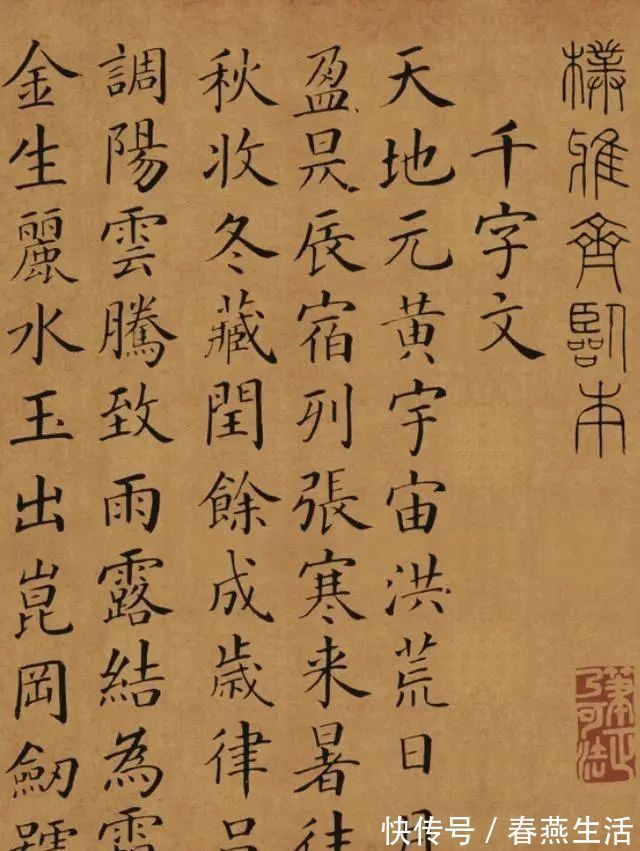 樸雅齊臨本
千字文
天地元黃宇宙洪荒日月
盈昃辰宿列張寒来暑往
秋收冬藏閏餘成歲律吕
調陽雲騰致雨露結為霜
金生麗水玉出崑岡劒號
筆正乃可法
快传号 / 春燕生活